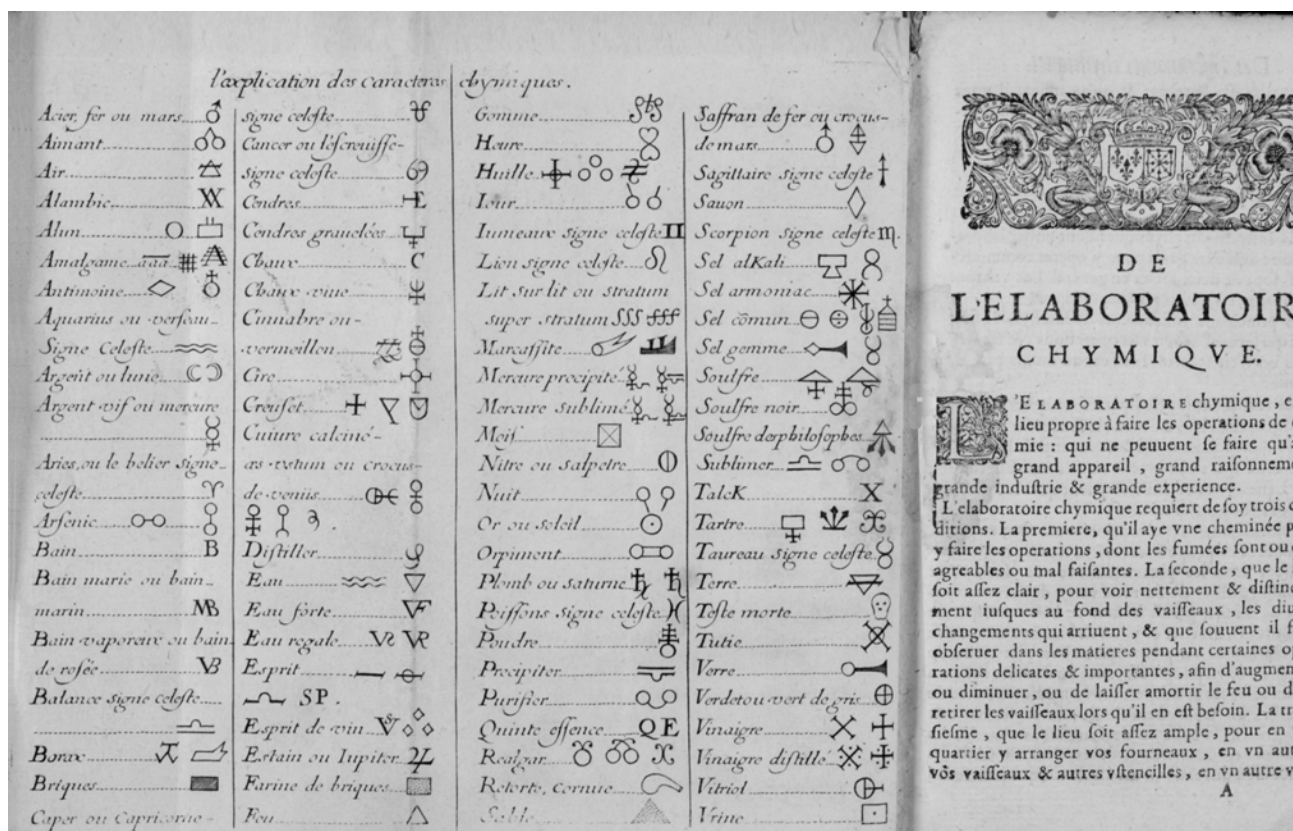 l'explication des caracteres chymiques.
Acier, fer ou mars
Aimant
Air
Alambic
Alun
Amalgame aaa
Antimoine
Aquarius ou verseau
Signe Celeste
Argent ou lune
Argent vif ou mercure
Aries, ou le belier signe
celeste
Arsenic
Bain B
Bain marie ou bain
marin MB
Bain vaporeux ou bain
de rosée VB
Balance signe celeste
Borax
Briques
Caper ou Capricorne
signe celeste
Cancer ou l'escreuisse
signe celeste
Cendres E
Cendres grauelées
Chaux C
Chaux viue
Cinnabre ou
vermeillon
Cire
Creuset
Cuiure calciné
æs vstum ou crocus
de venus
Distiller
Eau
Eau forte VF
Eau regale VR VR
Esprit
SP.
Esprit de vin
Estain ou Iupiter
Farine de briques
Feu
Gomme
Heure
Huille
Iour
Iumeaux signe celeste
Lion signe celeste
Lit sur lit ou stratum
super stratum SSS
Marcassite
Mercure precipité
Mercure sublimé
Mois
Nitre ou salpetre
Nuit
Or ou soleil
Orpiment
Plomb ou saturne
Poissons signe celeste
Poudre
Precipiter
Purifier
Quinte essence QE
Realgar
Retorte, cornue
Sable
Saffran de fer ou crocus
de mars
Sagittaire signe celeste
Sauon
Scorpion signe celeste
Sel alKali
Sel armoniac
Sel cõmun
Sel gemme
Soulfre
Soulfre noir
Soulfre des philosophes
Sublimer
TalcK X
Tartre
Taureau signe celeste
Terre
Teste morte
Tutie
Verre
Verdet ou vert de gris
Vinaigre
Vinaigre distillé
Vitriol
Vrine
DE
L'ELABORATOIR
CHYMIQVE.
L'ELABORATOIRE chymique, e
lieu propre à faire les operations de
mie : qui ne peuuent se faire qu'
grand appareil , grand raisonnem
grande industrie & grande experience.
L'elaboratoire chymique requiert de soy trois c
ditions. La premiere, qu'il aye vne cheminée p
y faire les operations , dont les fumées sont ou
agreables ou mal faisantes. La seconde , que le
soit assez clair , pour voir nettement & distinc
ment iusques au fond des vaisseaux , les diu
changements qui arriuent , & que souuent il f
obseruer dans les matieres pendant certaines o
rations delicates & importantes , afin d'augmen
ou diminuer , ou de laisser amortir le feu ou d
retirer les vaisseaux lors qu'il en est besoin. La tr
siesme , que le lieu soit assez ample , pour en
quartier y arranger vos fourneaux , en vn aut
vos vaisseaux & autres vstencilles , en vn autre v
A